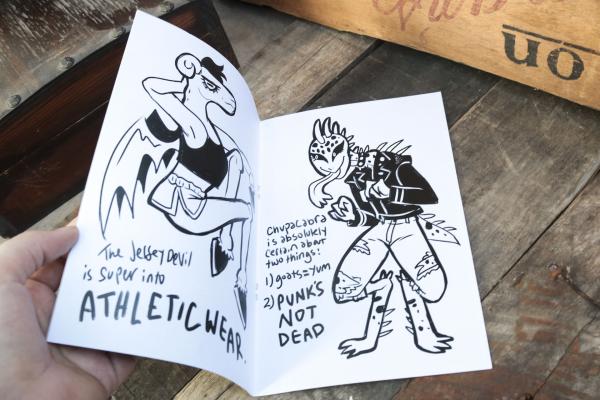 The Jersey Devil
is super into
ATHLETIC WEAR.
Chupacabra
is absolutely
certain about
two things:
1) goats=yum
2) PUNK'S
NOT
DEAD